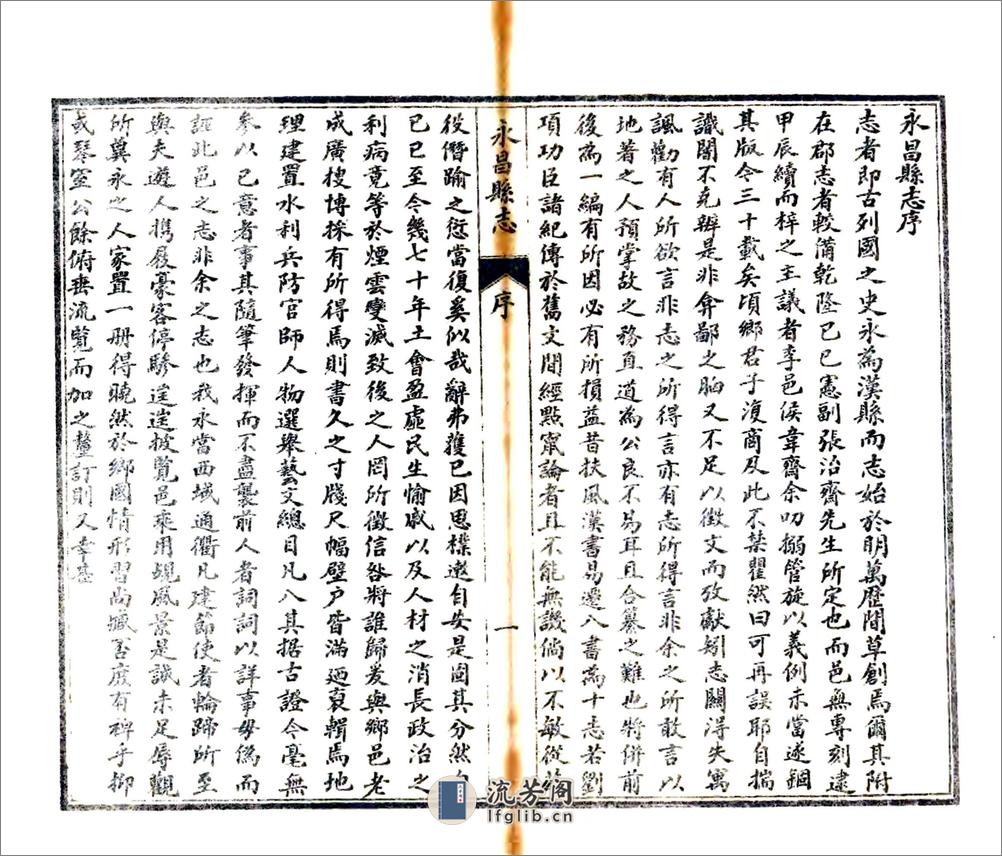 永昌縣志序
志者即古列國之史永為漢縣而志始於明萬歷間草創焉爾其附
在郡志者較備乾隆己巳憲副張治齋先生所定也而邑無專刻逮
甲辰續而梓之主議者李邑侯韋齋余叨搦管旋以義例未當遂錮
其版今三十載矣頃鄉君子復商及此不禁瞿然曰可再誤耶自揣
識闇不克辨是非弇鄙之胸又不足以徵文而攷獻矧志關得失寓
諷勸有人所欲言非志之所得言亦有志所得言非余之所敢言以
地著之人預掌故之務直道為公良不易耳且合纂之難也將併前
後為一編有所因必有所損益昔扶風漢書易遷八書為十志若劉
項功臣諸紀傳於舊文間經點竄論者且不能無譏倘以不敏從
永昌縣志
序
一
役僭踰之愆當復奚似哉辭弗獲已因思檏遬自安是固其分然
己巳至今幾七十年土會盈虛民生愉戚以及人材之消長政治之
利病竟等於煙雲變滅致後之人罔所徵信咎將誰歸爰與鄉邑老
成廣搜博採有所得焉則書久之寸牋尺幅壁户皆滿迺裒輯焉地
理建置水利兵防官師人物選舉藝文總目凡八其据古證今毫無
參以己意者事其隨筆發揮而不盡襲前人者詞詞以詳事毋偽而
誣此邑之志非余之志也我永當西域通衢凡建節使者輪蹄所至
與夫遊人携屐豪客停驂遑遑披覽邑乘用覘風景是誠未足辱觀
所冀永之人家置一册得曉然於鄉國情形習尚臧否庶有裨乎抑
或琴室公餘俯垂流覽而加之釐訂則又幸甚
流芳阁
lfglib.cn